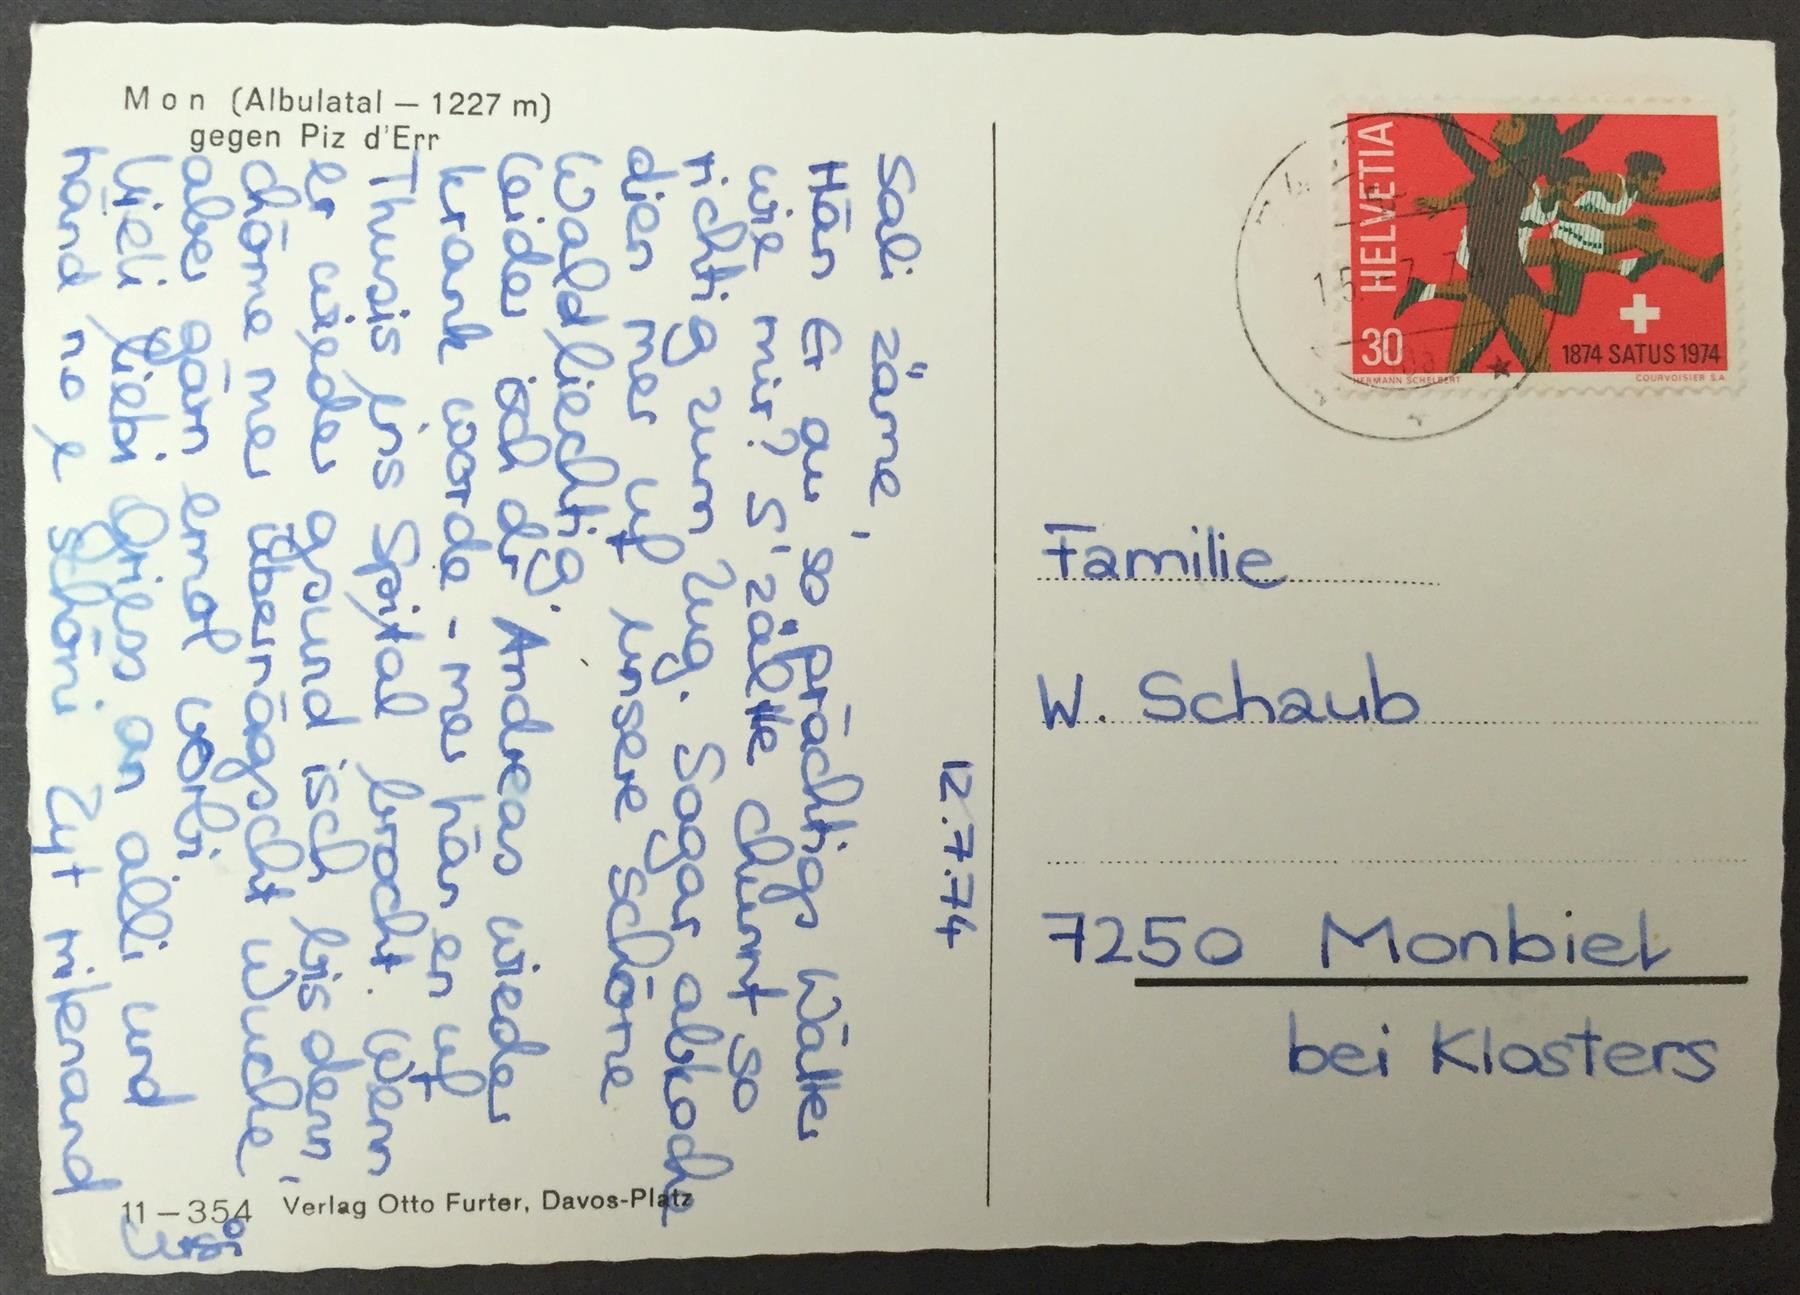 Mon (Albulatal — 1227 m)
gegen Piz d'Err
12.7.74
Sali zäme,
Hän Er au so prächtigs Wätter
wie mir? S' zältle chunnt so
richtig zum Zug. Sogar abkoche
dien mer uf unsere schöne
Waldliechtig.
Leider isch dr Andreas wieder
krank worde - mer hän en uf
Thusis ins Spital brocht. Wenn
er wieder gsund isch bis denn,
chöme mer überrägscht Wuche
aber gärn emol vorbi
Vieli liebi Griess an alli und
händ no e schöni Zyt mitenand
HELVETIA
30
1874 SATUS 1974
HERMANN SCHELBERT
COURVOISIER S.A.
15.-7.74
Familie
W. Schaub
7250 Monbiel
bei Klosters
11 — 354 Verlag Otto Furter, Davos-Platz